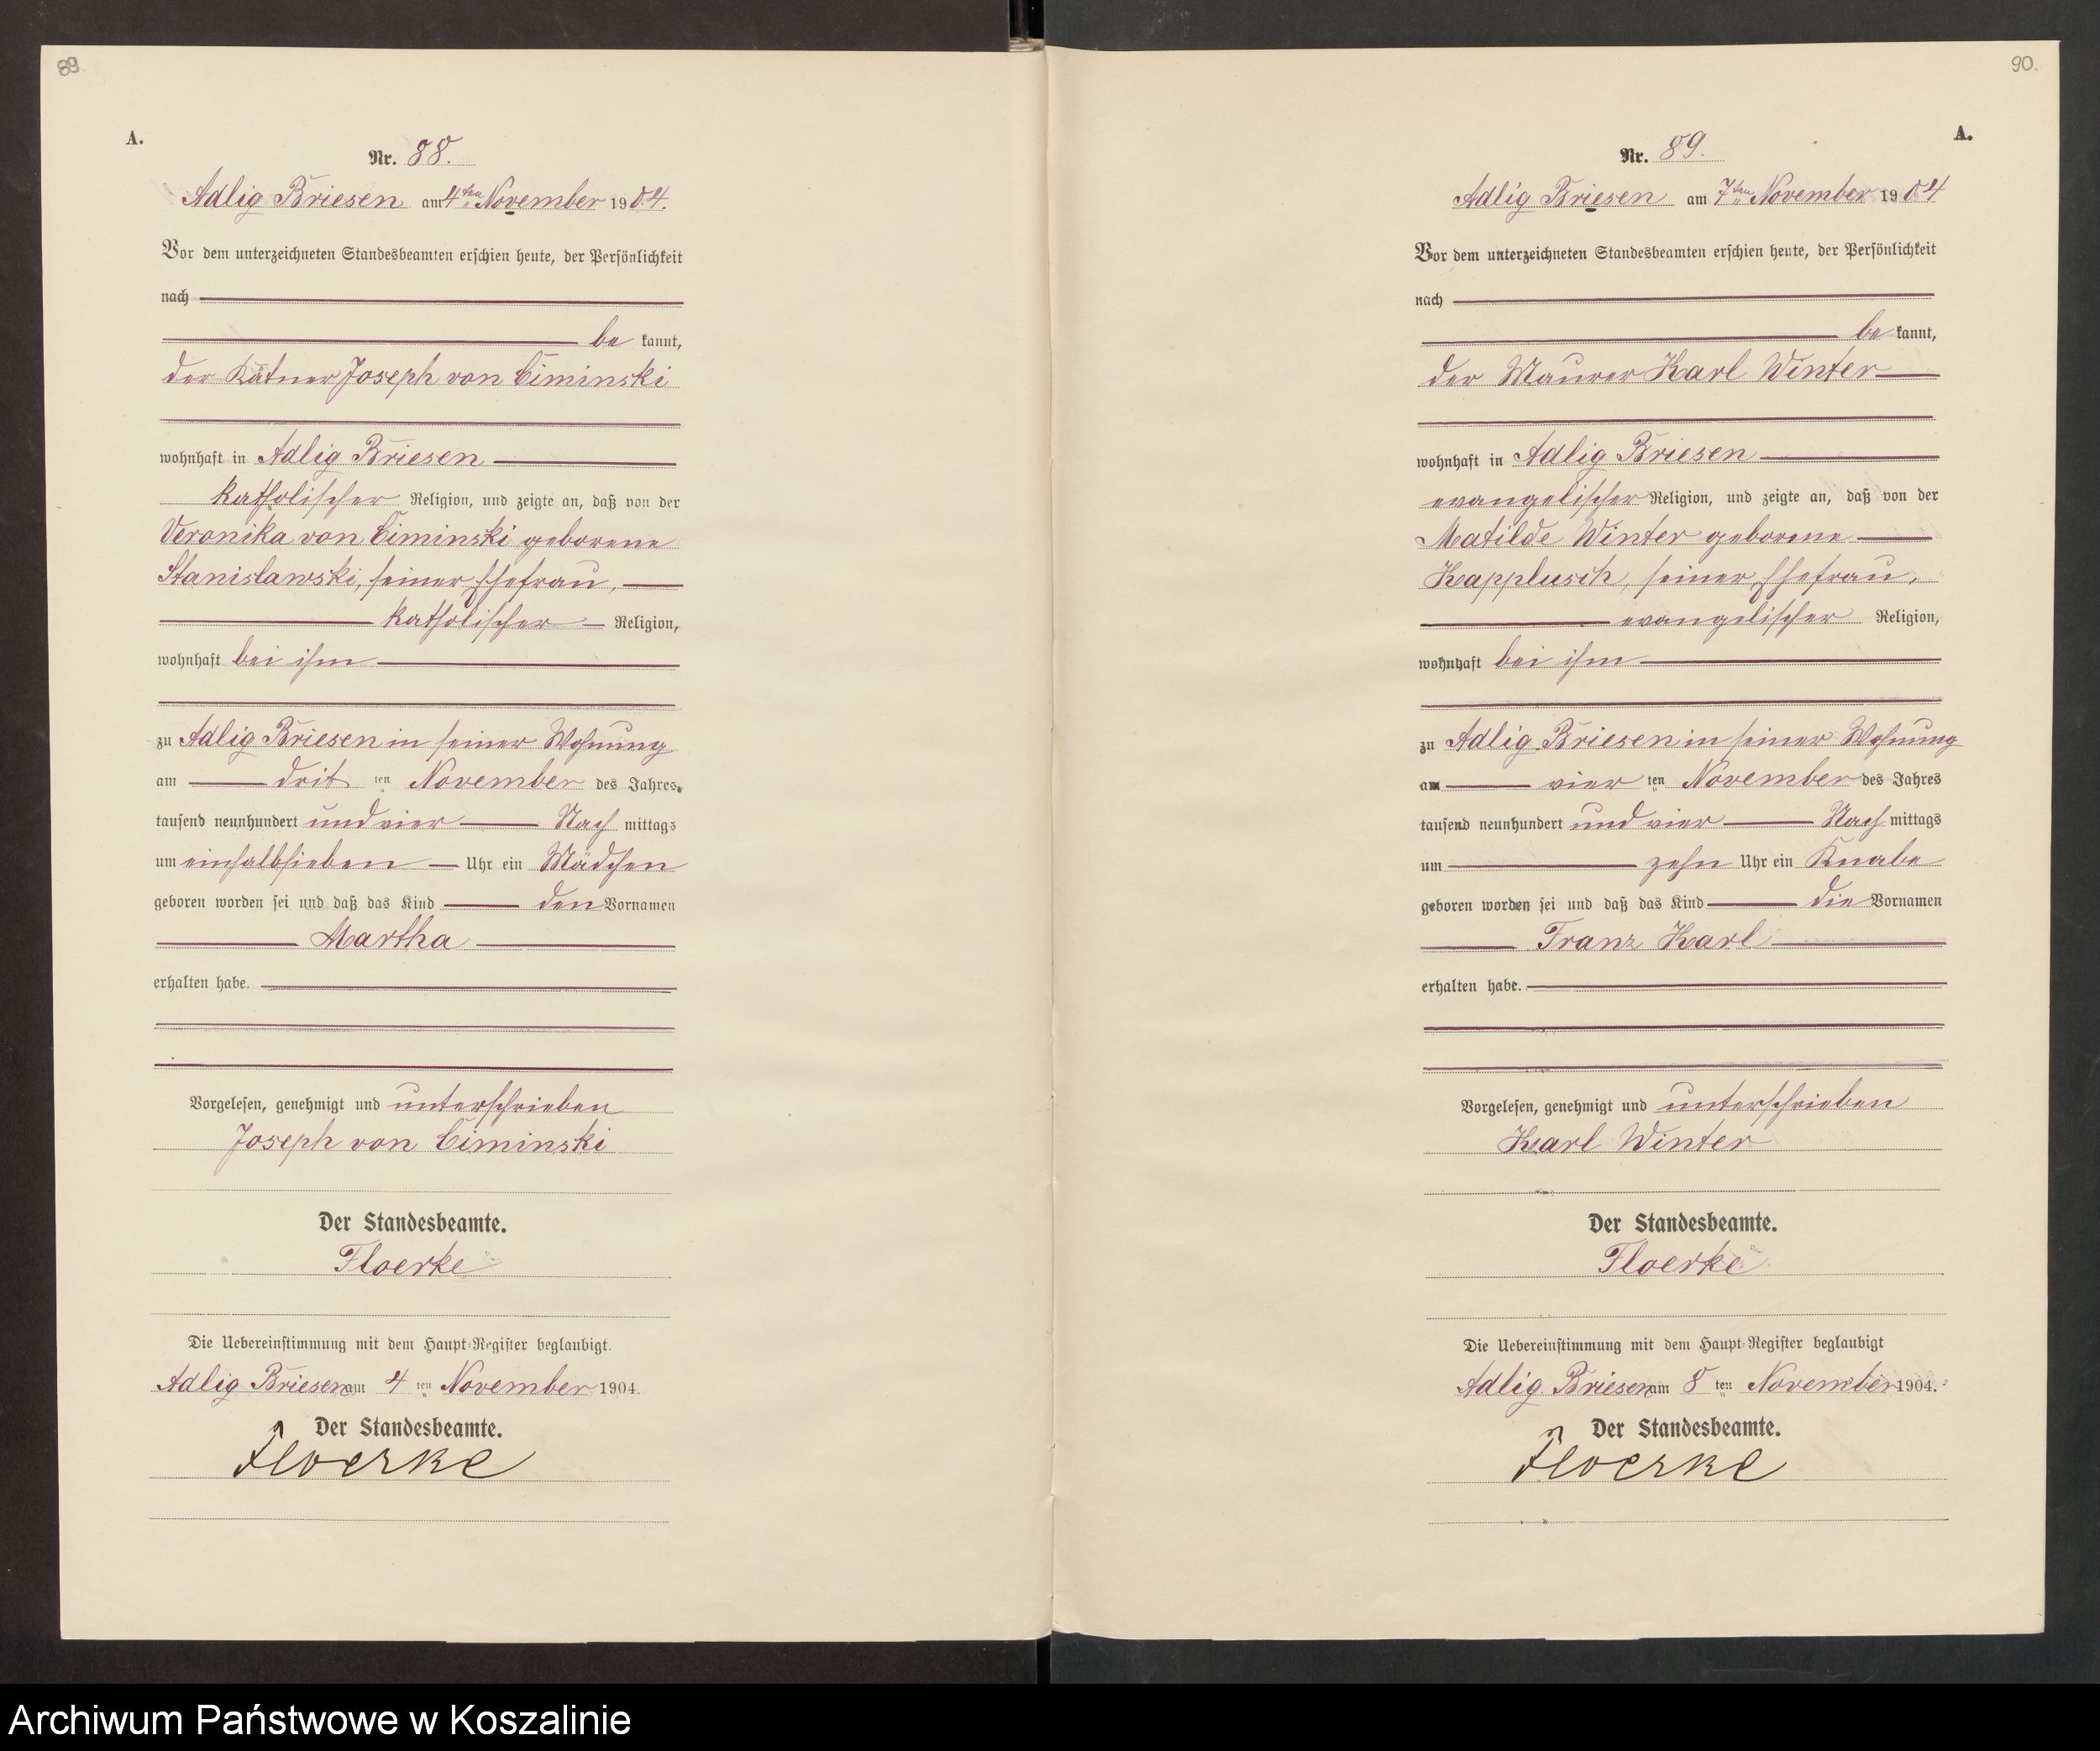 89.
A.
Nr. 88.
Adlig Briesen am 4ten November 1904.
Vor dem unterzeichneten Standesbeamten erschien heute, der Persönlichkeit
nach
be kannt,
der Kätner Joseph von Ciminski
wohnhaft in Adlig Briesen
katholischer Religion, und zeigte an, daß von der
Veronika von Ciminski geborene
Stanislawski, seiner Ehefrau,
katholischer Religion,
wohnhaft bei ihm
zu Adlig Briesen in seiner Wohnung
am drit ten November des Jahres
tausend neunhundert und vier Nach mittags
um einhalbsieben Uhr ein Mädchen
geboren worden sei und daß das Kind den Vornamen
Martha
erhalten habe.
Vorgelesen, genehmigt und unterschrieben
Joseph von Ciminski
Der Standesbeamte.
Floerke
Die Uebereinstimmung mit dem Haupt-Register beglaubigt.
Adlig Briesen am 4 ten November 1904.
Der Standesbeamte.
Floerke
90.
A.
Nr. 89.
Adlig Briesen am 7ten November 1904
Vor dem unterzeichneten Standesbeamten erschien heute, der Persönlichkeit
nach
be kannt,
der Maurer Karl Winter
wohnhaft in Adlig Briesen
evangelischer Religion, und zeigte an, daß von der
Matilde Winter geborene
Kapplusch, seiner Ehefrau,
evangelischer Religion,
wohnhaft bei ihm
zu Adlig Briesen in seiner Wohnung
am vier ten November des Jahres
tausend neunhundert und vier Nach mittags
um zehn Uhr ein Knabe
geboren worden sei und daß das Kind die Vornamen
Franz Karl
erhalten habe.
Vorgelesen, genehmigt und unterschrieben
Karl Winter
Der Standesbeamte.
Floerke
Die Uebereinstimmung mit dem Haupt-Register beglaubigt
Adlig Briesen am 8 ten November 1904.
Der Standesbeamte.
Floerke
Archiwum Państwowe w Koszalinie